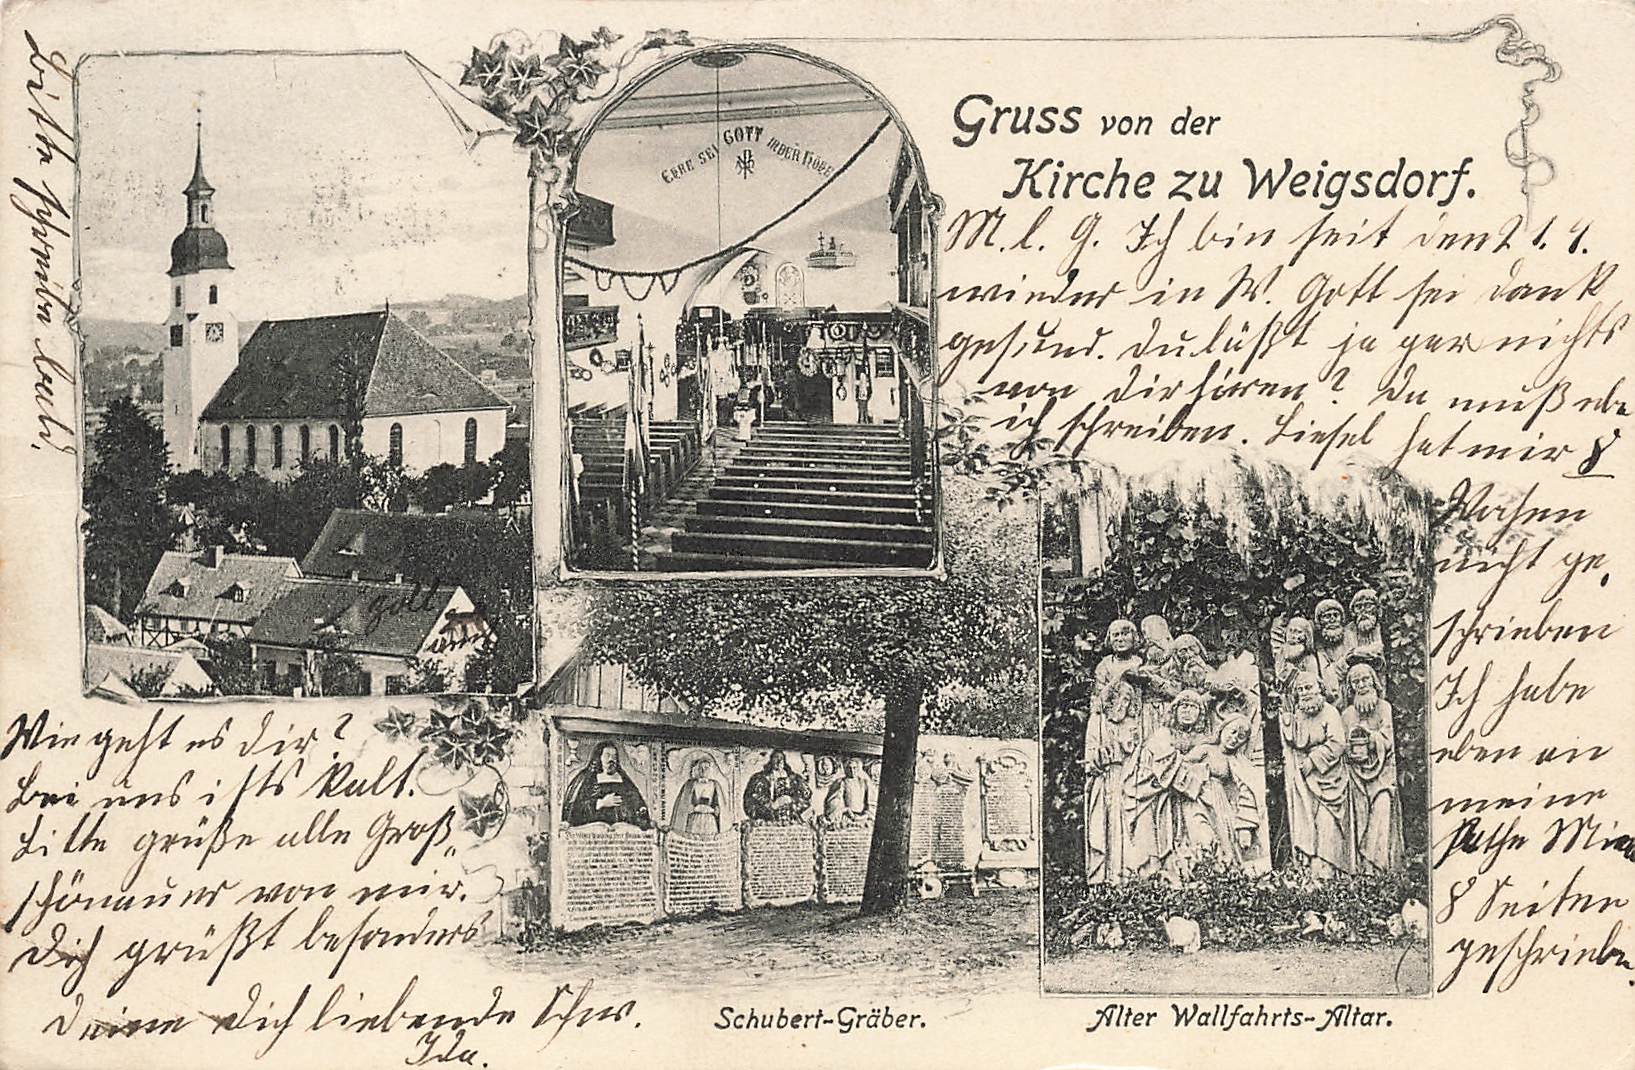 Gruss von der
Kirche zu Weigsdorf.
EHRE SEI GOTT IN DER HÖHE
M. l. G. Ich bin seit den 1. 4.
wieder in W. Gott sei dank
gesund. Du läßt ja gar nichts
von dir hören? Da muß ebe
ich schreiben. Liesel hat mir 8
Wochen
nicht ge
schrieben
Ich habe
eben an
meine
Pathe
8 Seiten
geschrieben.
Bitte schreibe bald.
Wie geht es dir?
Bei uns ists kalt.
Bitte grüße alle Groß„
schönauer von mir.
Dich grüßt besonders
Deine Dich liebende Schw.
Ida.
Schubert-Gräber.
Alter Wallfahrts-Altar.